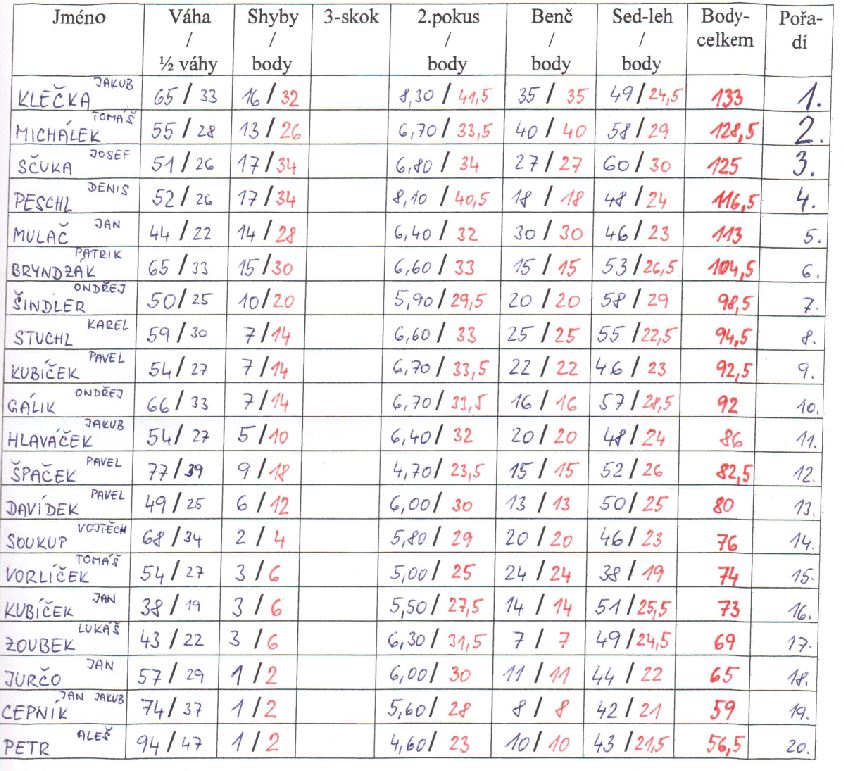 Jméno Váha / ½ váhy Shyby / body 3-skok 2.pokus / body Benč / body Sed-leh / body Body-celkem Pořa-dí
KLEČKA JAKUB 65 / 33 16 / 32 8,30 / 41,5 35 / 35 49 / 24,5 133 1.
MICHÁLEK TOMÁŠ 55 / 28 13 / 26 6,70 / 33,5 40 / 40 58 / 29 128,5 2.
SČUKA JOSEF 51 / 26 17 / 34 6,80 / 34 27 / 27 60 / 30 125 3.
PESCHL DENIS 52 / 26 17 / 34 8,10 / 40,5 18 / 18 48 / 24 116,5 4.
MULAČ JAN 44 / 22 14 / 28 6,40 / 32 30 / 30 46 / 23 113 5.
BRYNDZÁK PATRIK 65 / 33 15 / 30 6,60 / 33 15 / 15 53 / 26,5 104,5 6.
ŠINDLER ONDŘEJ 50 / 25 10 / 20 5,90 / 29,5 20 / 20 58 / 29 98,5 7.
STUCHL KAREL 59 / 30 7 / 14 6,60 / 33 25 / 25 55 / 22,5 94,5 8.
KUBÍČEK PAVEL 54 / 27 7 / 14 6,70 / 33,5 22 / 22 46 / 23 92,5 9.
GÁLIK ONDŘEJ 66 / 33 7 / 14 6,70 / 33,5 16 / 16 57 / 28,5 92 10.
HLAVÁČEK JAKUB 54 / 27 5 / 10 6,40 / 32 20 / 20 48 / 24 86 11.
ŠPAČEK PAVEL 77 / 39 9 / 18 4,70 / 23,5 15 / 15 52 / 26 82,5 12.
DAVÍDEK PAVEL 49 / 25 6 / 12 6,00 / 30 13 / 13 50 / 25 80 13.
SOUKUP VOJTĚCH 68 / 34 2 / 4 5,80 / 29 20 / 20 46 / 23 76 14.
VORLÍČEK TOMÁŠ 54 / 27 3 / 6 5,00 / 25 24 / 24 38 / 19 74 15.
KUBÍČEK JAN 38 / 19 3 / 6 5,50 / 27,5 14 / 14 51 / 25,5 73 16.
ZOUBEK LUKÁŠ 43 / 22 3 / 6 6,30 / 31,5 7 / 7 49 / 24,5 69 17.
JURČO JAN 57 / 29 1 / 2 6,00 / 30 11 / 11 44 / 22 65 18.
CEPNÍK JAN JAKUB 74 / 37 1 / 2 5,60 / 28 8 / 8 42 / 21 59 19.
PETR ALEŠ 94 / 47 1 / 2 4,60 / 23 10 / 10 43 / 21,5 56,5 20.